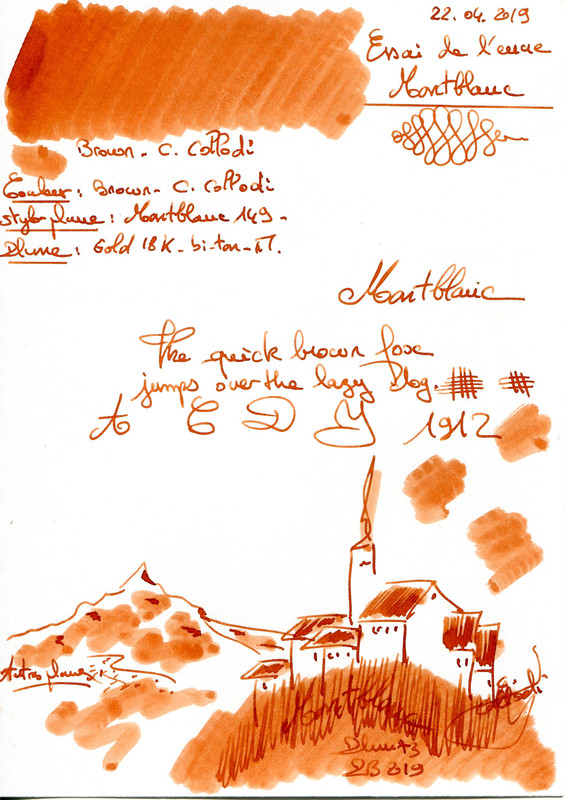 22.04.2019
Essai de l'encre
Montblanc
Brown - C. Collodi
Couleur : Brown - C. Collodi
stylo plume : Montblanc 149 -
Plume : Gold 18K - bi-ton - M.
Montblanc
The quick brown fox
jumps over the lazy dog.
A C D Y 1912
Montblanc
2B 2019